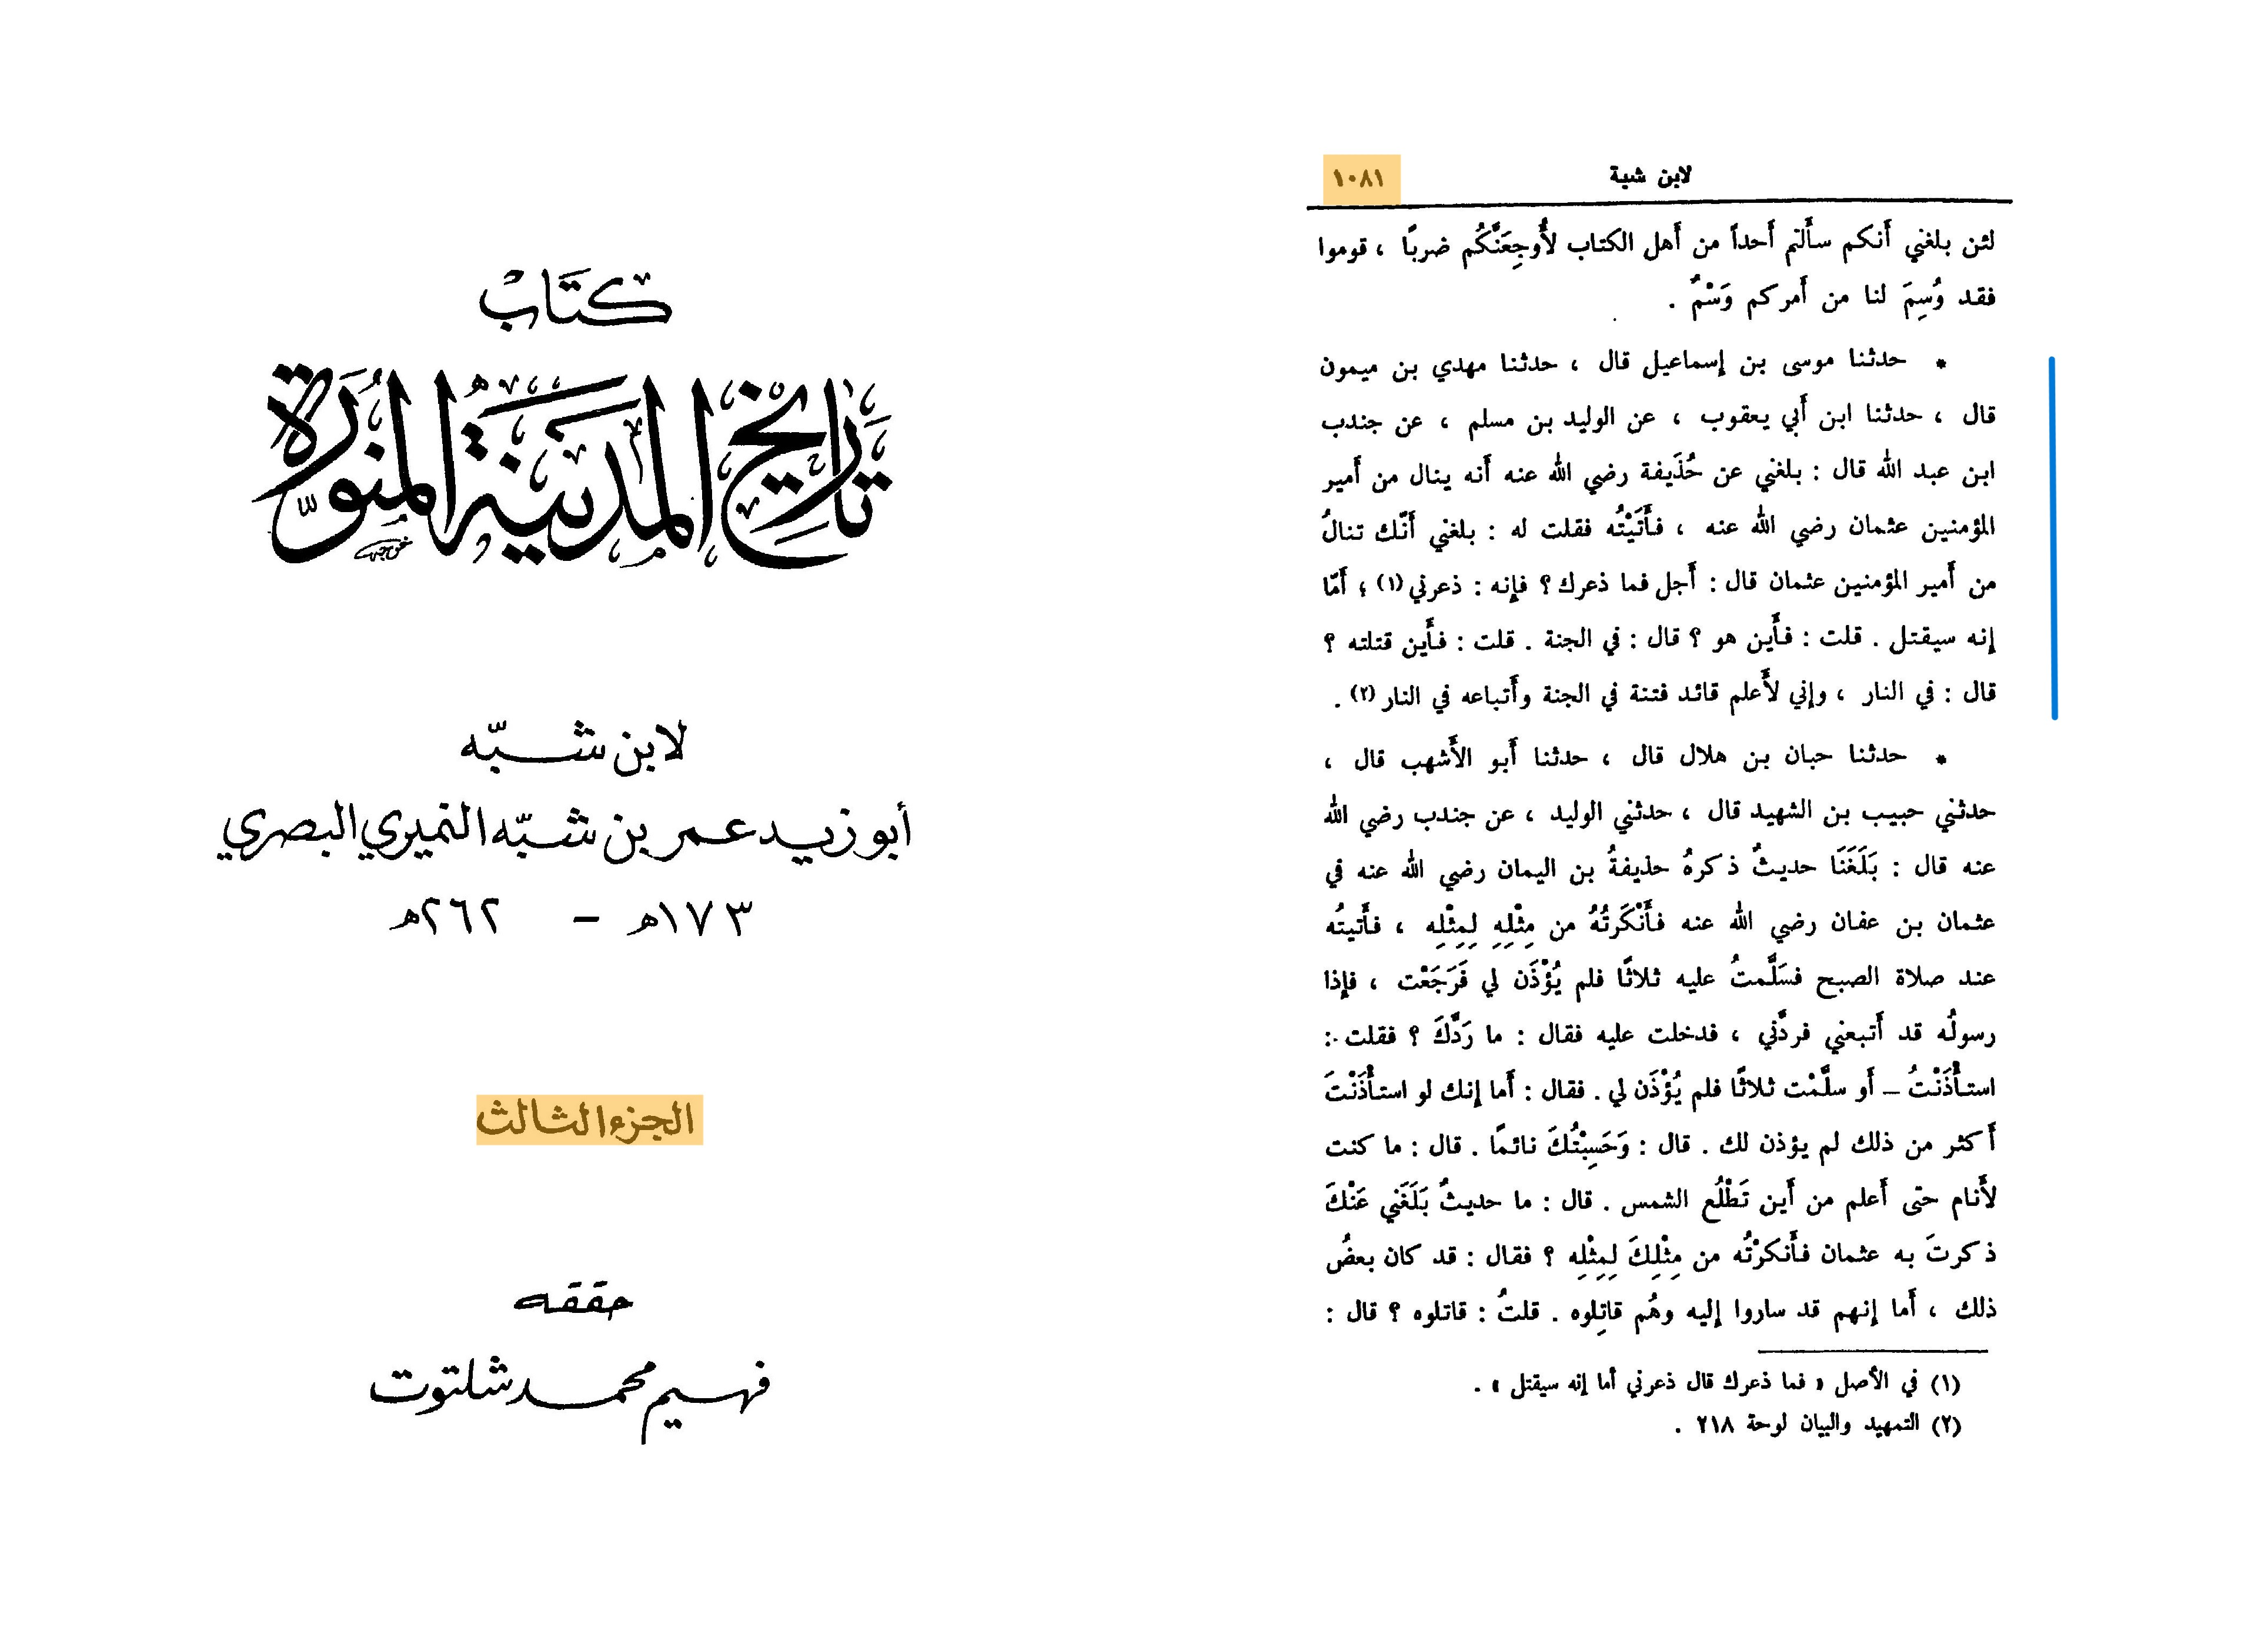 كتاب
تاريخ المدينة المنورة
لابن شبّه
أبو زيد عمر بن شبّه النميري البصري
١٧٣هـ - ٢٦٢هـ
الجزء الثالث
حققه
فهيم محمد شلتوت
لابن شبة ١٠٨١
لئن بلغني أَنكم سأَلتم أَحداً من أَهل الكتاب لأُوجِعَنَّكُم ضربًا ، قوموا
فقد وُسِمَ لنا من أَمركم وَسْمٌ .
* حدثنا موسى بن إسماعيل قال ، حدثنا مهدي بن ميمون
قال ، حدثنا ابن أَبي يعقوب ، عن الوليد بن مسلم ، عن جندب
ابن عبد الله قال : بلغني عن حُذَيفة رضي الله عنه أَنه ينال من أَمير
المؤمنين عثمان رضي الله عنه ، فأَتَيْتُه فقلت له : بلغني أَنّك تنالُ
من أَمير المؤمنين عثمان قال : أَجل فما ذعرك ؟ فإنه : ذعرني (١) ؛ أَمّا
إنه سيقتل . قلت : فأَين هو ؟ قال : في الجنة . قلت : فأَين قتلته ؟
قال : في النار ، وإني لأَعلم قائد فتنة في الجنة وأَتباعه في النار (٢) .
* حدثنا حبان بن هلال قال ، حدثنا أَبو الأَشهب قال ،
حدثني حبيب بن الشهيد قال ، حدثني الوليد ، عن جندب رضي الله
عنه قال : بَلَغَنَا حديثٌ ذكرهُ حذيفةُ بن اليمان رضي الله عنه في
عثمان بن عفان رضي الله عنه فأَنْكَرتُهُ من مِثْلِهِ لِمِثْلِه ، فأَتيتُه
عند صلاة الصبح فسَلَّمتُ عليه ثلاثًا فلم يُؤْذَن لي فَرَجَعْت ، فإذا
رسولُه قد أَتبعني فردَّني ، فدخلت عليه فقال : ما رَدَّكَ ؟ فقلت :
استأْذَنْتُ – أَو سلَّمْت ثلاثًا فلم يُؤْذَن لي . فقال : أَما إنك لو استأْذَنْتَ
أَكثر من ذلك لم يؤذن لك . قال : وَحَسِبْتُكَ نائمًا . قال : ما كنت
لأَنام حتى أَعلم من أَين تَطْلُع الشمس . قال : ما حديثٌ بَلَغَني عَنْكَ
ذكرتَ به عثمان فأَنكرْتُه من مِثْلِكَ لِمِثْلِه ؟ فقال : قد كان بعضُ
ذلك ، أَما إنهم قد ساروا إليه وهُم قاتِلوه . قلتُ : قاتلوه ؟ قال :
(١) في الأصل « فما ذعرك قال ذعرني أما إنه سيقتل » .
(٢) التمهيد والبيان لوحة ٢١٨ .